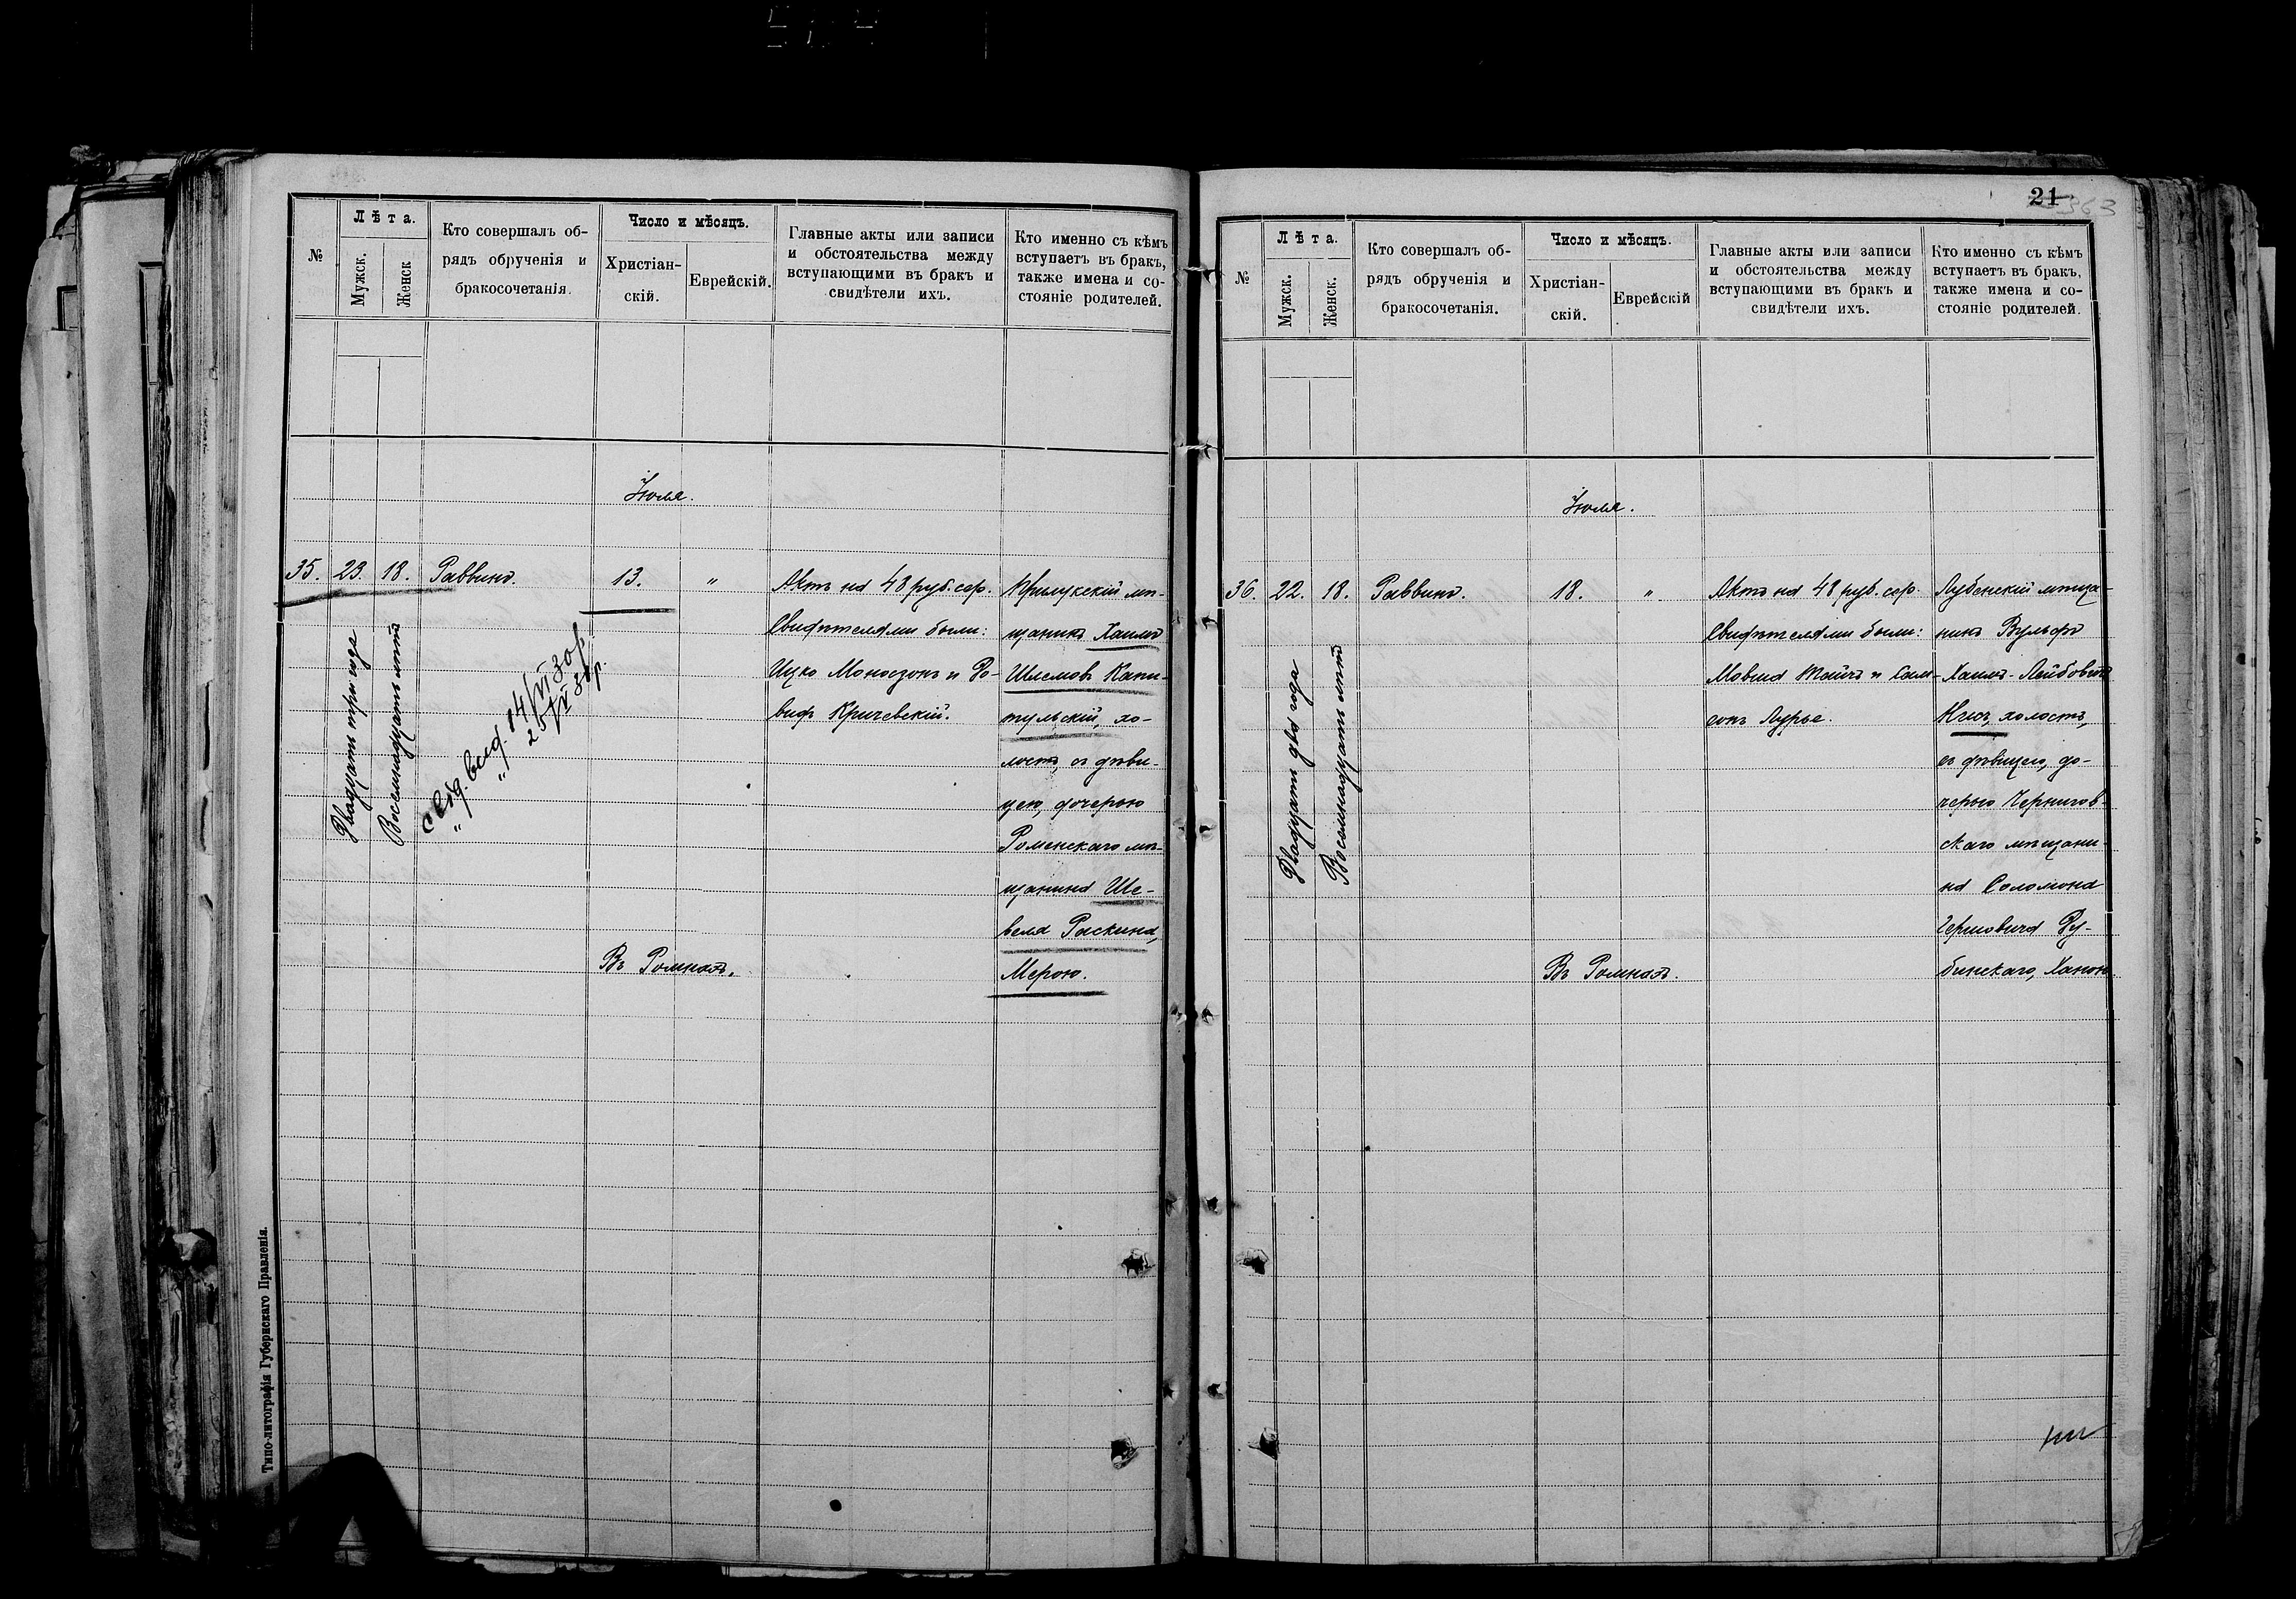 №
Лѣта.
Мужск.
Женск
Кто совершалъ об-
рядъ обрученія и
бракосочетанія.
Число и мѣсяцъ.
Христіан-
скій.
Еврейскій.
Главные акты или записи
и обстоятельства между
вступающими въ бракъ и
свидѣтели ихъ.
Кто именно съ кѣмъ
вступаетъ въ бракъ,
также имена и со-
стояніе родителей.
Іюля.
35.
23.
18.
Двадцати три года
Восемнадцать лѣтъ
Раввинъ.
Свид. выд. 14/VI 30 р.
" " 25/VI 31 р.
13.
"
Въ Ромнахъ.
Актъ на 48 руб. сер.
Свидѣтелями были:
Ицко Моносзонъ и До-
видъ Кричевскій.
Прилукскій мѣ-
щанинъ Хаимъ
Шлемовъ Капи-
тульскій, хо-
лостъ, съ дѣви-
цею, дочерью
Роменскаго мѣ-
щанина Ше-
вела Раскина,
Мерою.
Типо-литографія Губернскаго Правленія.
21
363
№
Лѣта.
Мужск.
Женск.
Кто совершалъ об-
рядъ обрученія и
бракосочетанія.
Число и мѣсяцъ.
Христіан-
скій.
Еврейскій
Главные акты или записи
и обстоятельства между
вступающими въ бракъ и
свидѣтели ихъ.
Кто именно съ кѣмъ
вступаетъ въ бракъ,
также имена и со-
стояніе родителей.
Іюля.
36.
22.
18.
Двадцати два года
Восемнадцать лѣтъ
Раввинъ.
18.
"
Въ Ромнахъ.
Актъ на 48 руб. сер.
Свидѣтелями были:
Мовша Тайчъ и Сам-
сонъ Лурье.
Лубенскій мѣща-
нинъ Вульфъ
Хаимъ-Лейбовъ
Кисъ, холостъ,
съ дѣвицею, до-
черью Чернигов-
скаго мѣщани-
на Соломона
Гершовича Ру-
бинскаго, Ханою